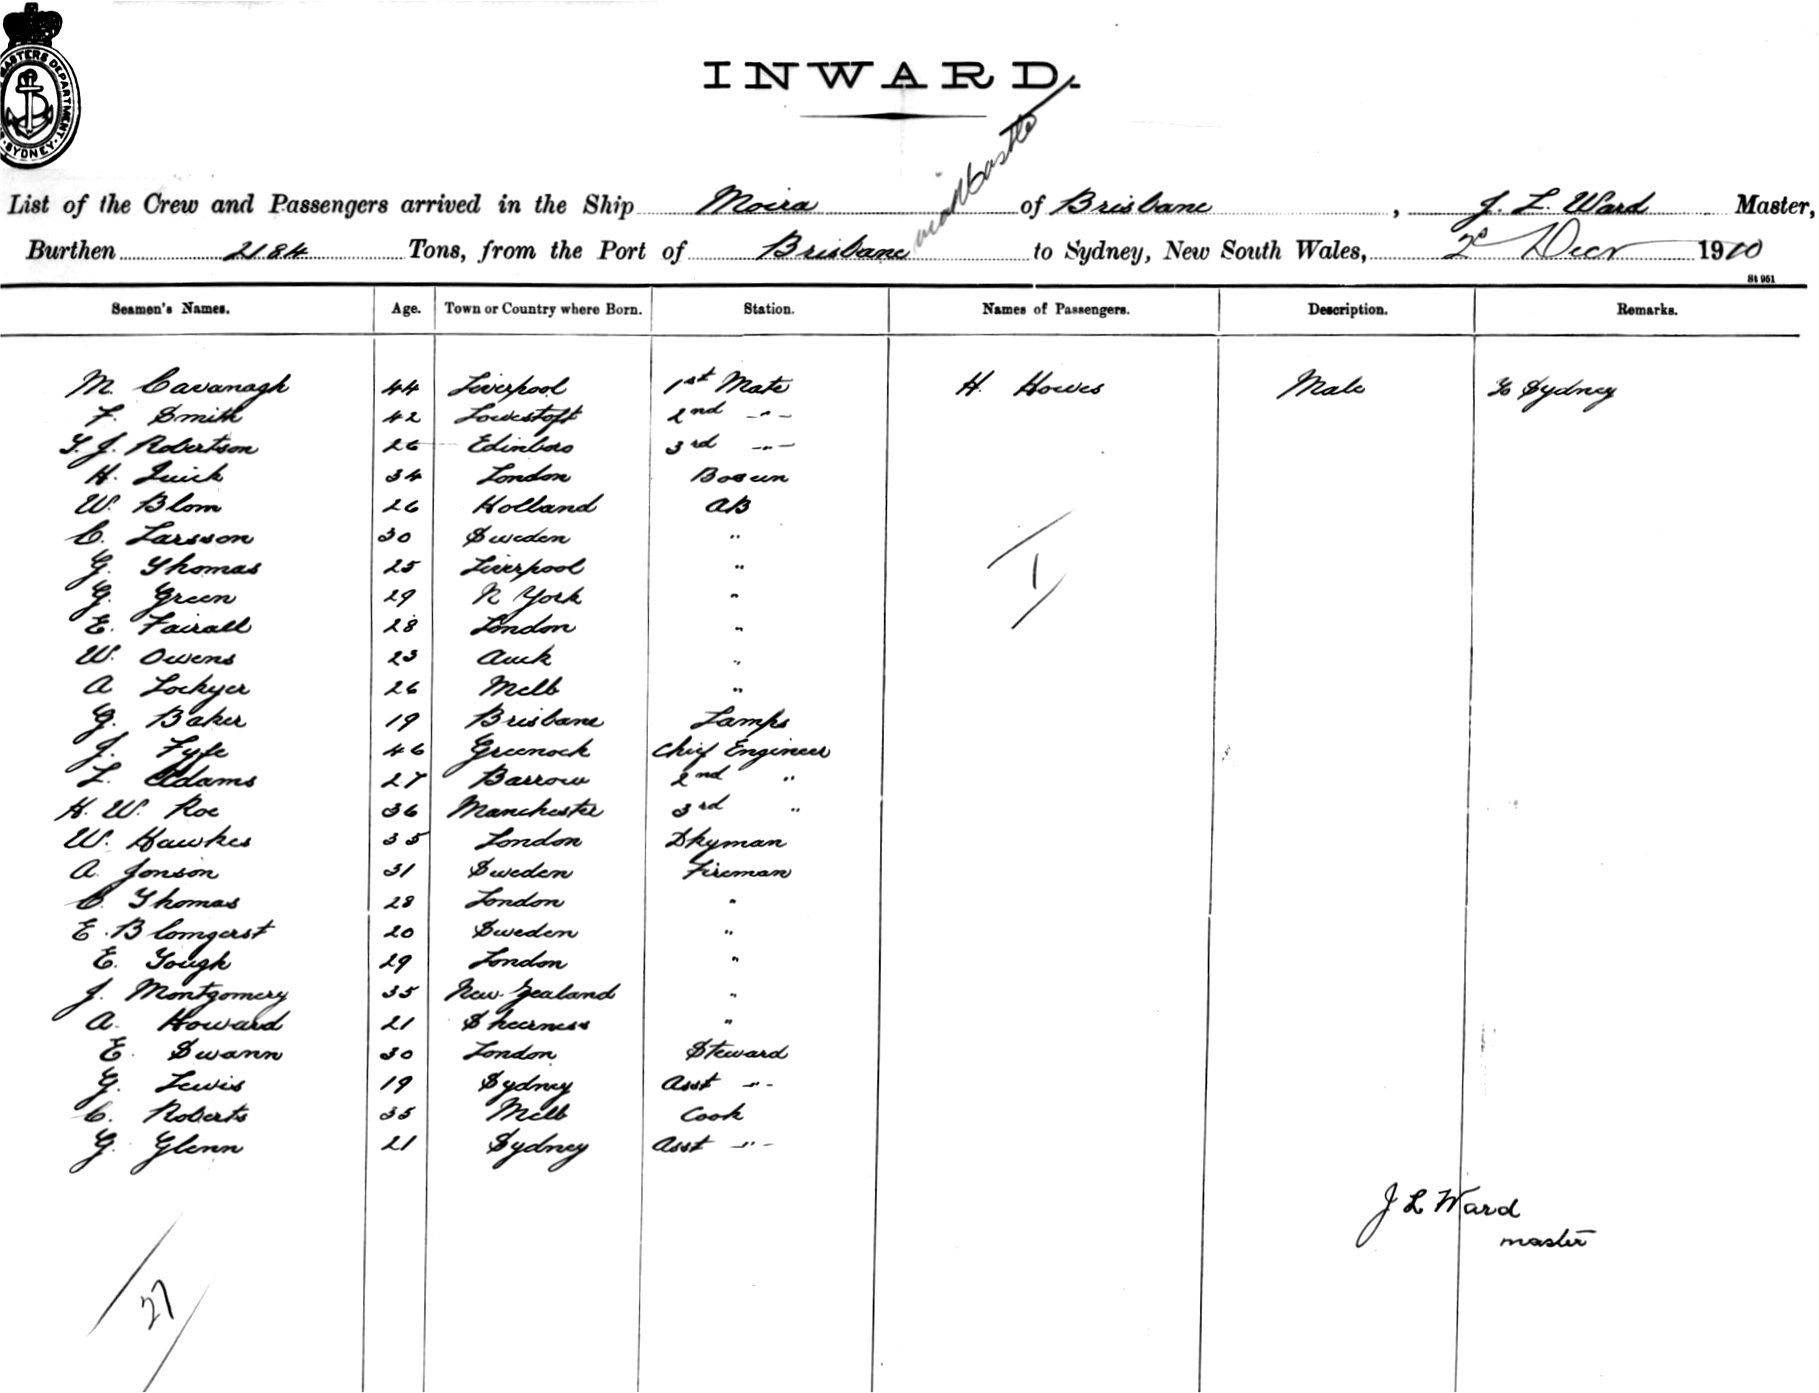 MASTERS DEPARTMENT
SYDNEY
INWARD.
via N'castle
List of the Crew and Passengers arrived in the Ship Moira of Brisbane, J. L. Ward Master,
Burthen 2184 Tons, from the Port of Brisbane to Sydney, New South Wales, 2d Decr 1910
St 951
Seamen's Names. Age. Town or Country where Born. Station. Names of Passengers. Description. Remarks.
M. Cavanagh 44 Liverpool 1st Mate H. Howes Male To Sydney
F. Smith 42 Lowestoft 2nd -"-
T. J. Robertson 26 Edinboro 3rd -"-
H. Quick 34 London Bosun
W. Blom 26 Holland AB
C. Larsson 30 Sweden "
G. Thomas 25 Liverpool "
G. Green 29 N York "
E. Fairall 28 London "
W. Owens 23 Auck "
A Lockyer 26 Melb "
G. Baker 19 Brisbane Lamps
J. Fyfe 46 Greenock Chief Engineer
L. Adams 27 Barrow 2nd "
H. W. Roe 36 Manchester 3rd "
W. Hawkes 35 London Dkyman
A. Jonson 31 Sweden Fireman
C. Thomas 28 London "
E. Blomgerst 20 Sweden "
E. Gough 29 London "
J. Montgomery 35 New Zealand "
A. Howard 21 Sheerness "
E. Swann 30 London Steward
G. Lewis 19 Sydney Asst -"-
C. Roberts 35 Melb Cook
G. Glenn 21 Sydney Asst -"-
1
J L Ward
master
27